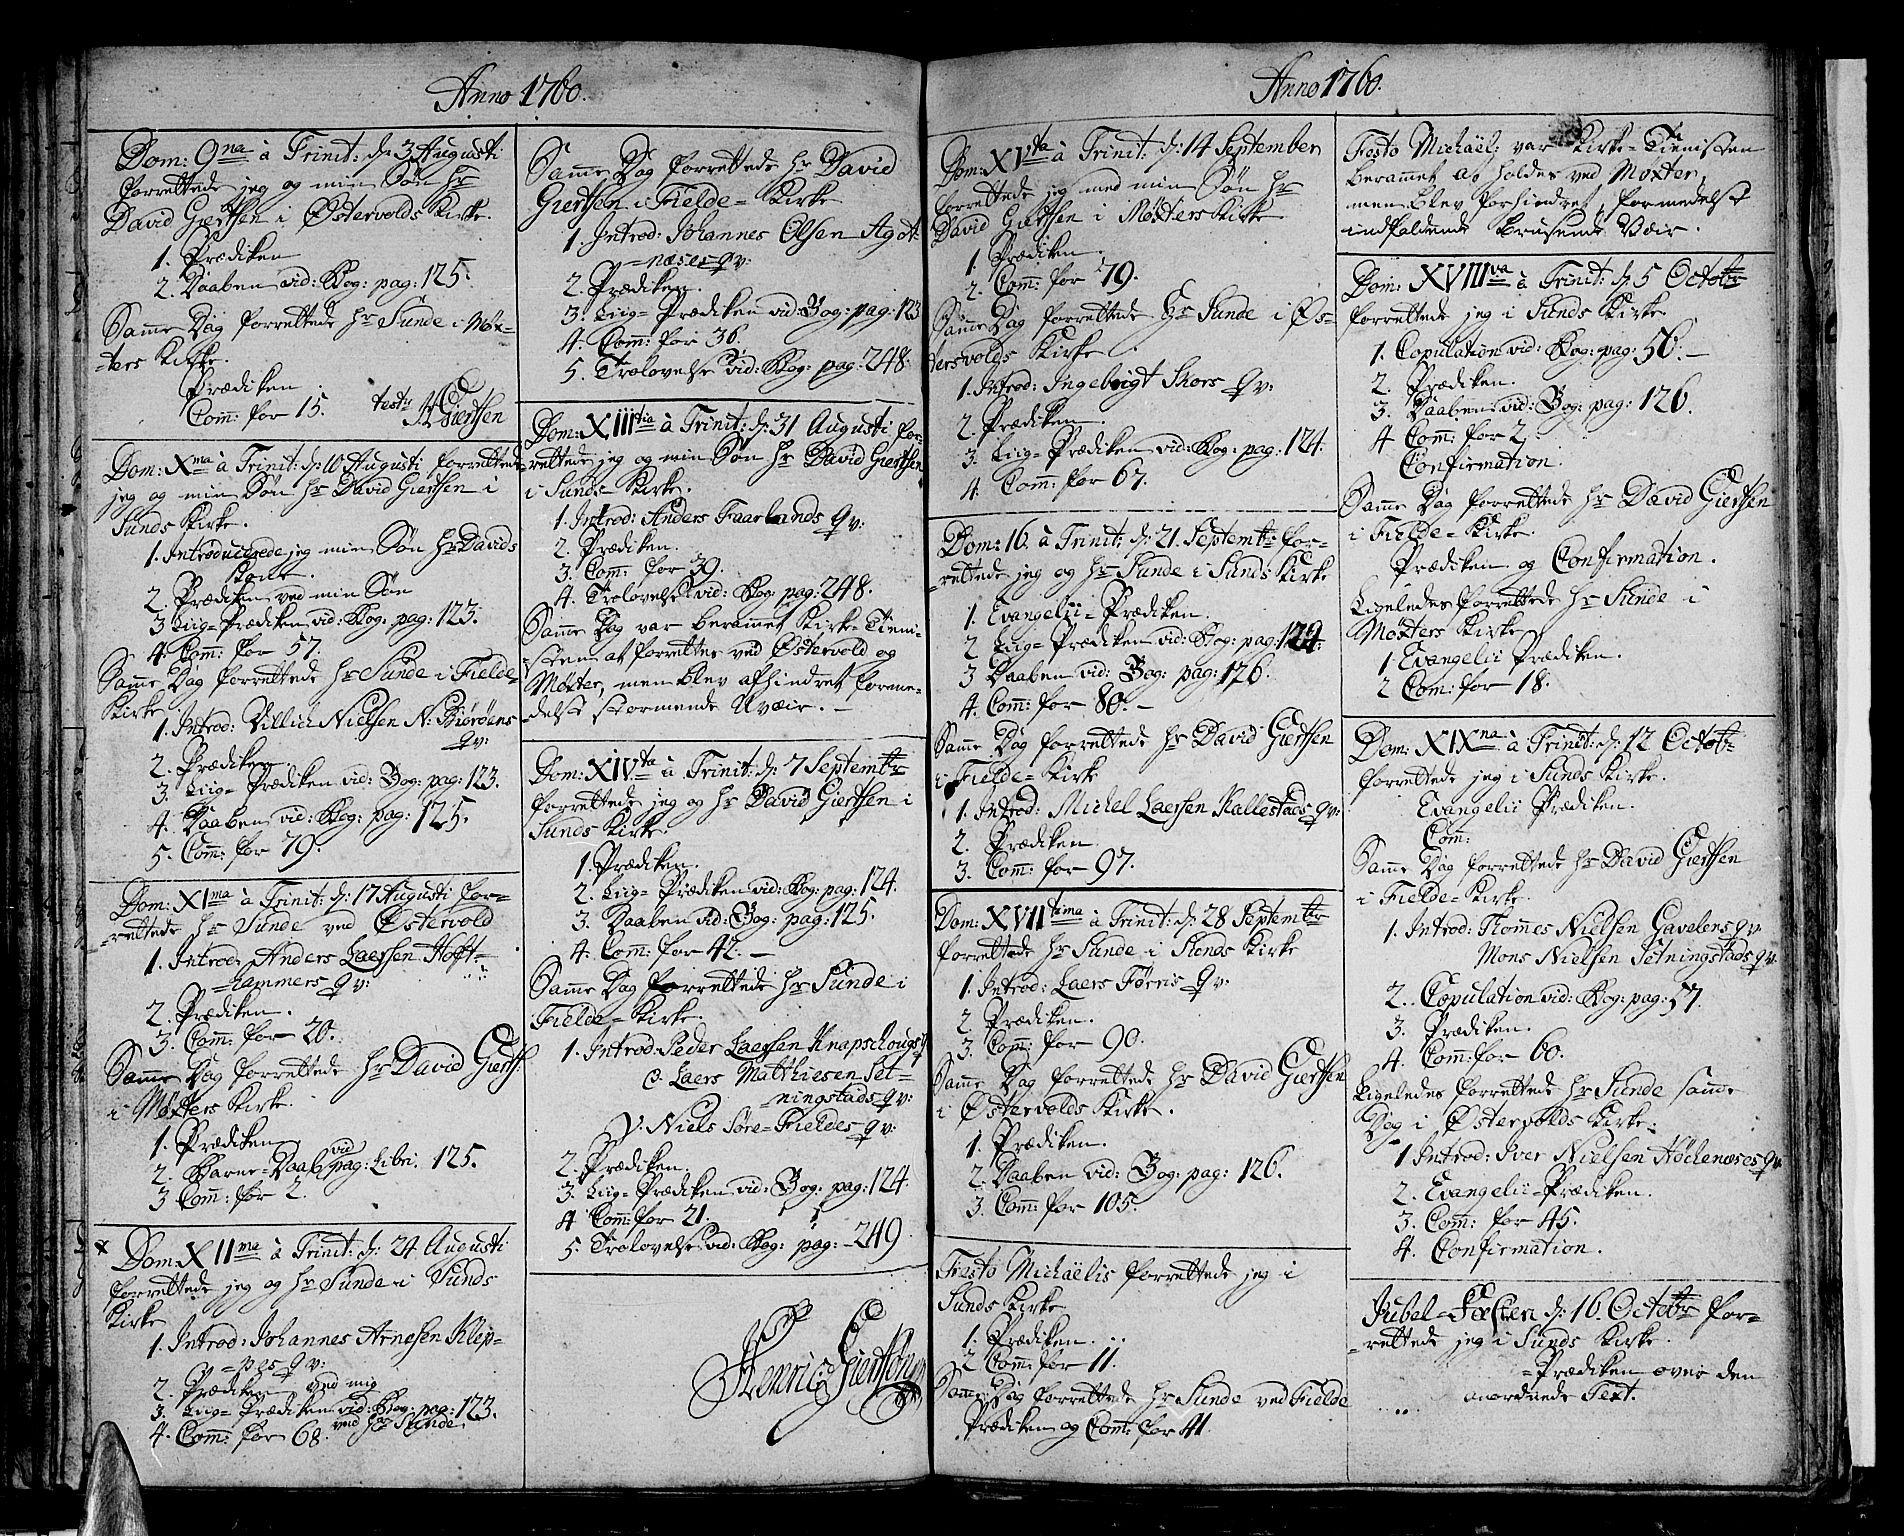 Anno 1760.
Dom: 9na à Trinit: d: 3 Augusti
forrettede jeg og min Søn hr
David Giertsen i Østervolds Kirke.
1. Prædiken
2. Daaben vid: Bog: pag: 125.
Samme Dag forrettede hr Sunde i Møx-
ters Kirke.
Prædiken
Com: for 15. testis H Giertsen
Dom: Xma à Trinit: d: 10 Augusti forrettede
jeg og min Søn hr David Giertsen i
Sunds Kirke.
1. Introducerede jeg min Søn hr Davids
Kone.
2. Prædiken ved min Søn
3 Liig-Prædiken vid: Bog: pag: 123.
4. Com: for 57.
Samme Dag forrettede hr Sunde i Fielde-
Kirke
1. Introd: Villich Nielsen N: Biørøens
qv:
2. Prædiken.
3. Liig-Prædiken vid: Bog: pag: 123.
4. Daaben vid: Bog: pag: 125.
5. Com: for 79.
Dom: XIma à Trinit: d: 17 Augusti for-
rettede hr Sunde ved Østervold
1. Introd: Anders Laersen Hoft-
hammers qv:
2. Prædiken.
3. Com: for 20.
Samme Dag forrettede hr David Gierts:
i Møxters Kirke.
1. Prædiken
2. Barne-Daab vid pag: Libri. 125.
3 Com: for 2.
x Dom: XIIma à Trinit: d: 24 Augusti
forrettede jeg og hr Sunde i Sunds
Kirke
1. Introd: Johannes Arnesen Klep-
pes qv:
2. Prædiken ved mig
3. Liig-Prædiken vid: Bog: pag: 123.
4. Com: for 68. ved hr Sunde
Samme Dag forrettede hr David
Giertsen i Fielde-Kirke
1. Introd: Johannes Olsen Agot-
næses qv:
2. Prædiken.
3. Liig-Prædiken vid: Bog: pag: 123
4. Com: for 36.
5. Trolovelse vid: Bog: pag: 248.
Dom: XIIItia à Trinit: d: 31 Augusti for-
rettede jeg og min Søn hr David Giertsen
i Sunds Kirke.
1. Introd: Anders Faarlands qv:
2. Prædiken.
3. Com: for 39.
4. Trolovelse vid: Bog: pag: 248.
Samme Dag var berammet Kirke-Tieni-
sten at forrettes ved Østervold og
Møxter, men blev afhindret forme-
delst stormende Uvæir.
Dom: XIVta à Trinit: d: 7 Septembr
forrettede jeg og hr David Giertsen i
Sunds Kirke.
1. Prædiken.
2. Liig-Prædiken vid: Bog: pag: 124.
3. Daaben vid: Bog: pag: 125.
4. Com: for 42.
Samme Dag forrettede hr Sunde i
Fielde-Kirke.
1. Introd: Peder Laersen Knapschougs qv
Laers Matthiesen Set-
ningstads qv:
Niels Søre-Fieldes qv:
2. Prædiken.
3. Liig-Prædiken vid: Bog: pag: 124.
4 Com: for 21.
5. Trolovelse vid: Bog: pag: 249.
Henric Giertsønn
Anno 1760.
Dom: XVta à Trinit: d: 14 September
forrettede jeg med min Søn hr
David Giertsen i Møxters Kirke
1. Prædiken
2. Com: for 79.
Samme Dag forrettede hr Sunde i Øs-
tervolds Kirke.
1. Introd: Ingebrigt Skors qv:
2. Prædiken.
3. Liig-Prædiken vid: Bog: pag: 124.
4. Com: for 67.
Dom: 16. à Trinit: d: 21. Septembr for-
rettede jeg og hr Sunde i Sunds Kirke
1. Evangelii-Prædiken.
2 Liig-Prædiken vid: Bog: pag: 124.
3 Daaben vid: Bog: pag: 126.
4. Com: for 80.
Samme Dag forrettede hr David Giertsen
i Fielde-Kirke
1. Introd: Michel Laersen Kallestads qv:
2. Prædiken.
3. Com: for 97.
Dom: XVIItima à Trinit: d: 28 Septembr
forrettede hr Sunde i Sunds Kirke
1. Introd: Laers Førris qv:
2. Prædiken.
3. Com: for 90.
Samme Dag forrettede hr David Giertsen
i Østervolds Kirke.
1. Prædiken.
2. Daaben vid: Bog: pag: 126.
3. Com: for 105.
Festo Michaëlis forrettede jeg i
Sunds Kirke
1. Prædiken.
2 Com: for 11.
Samme Dag forrettede hr Sunde ved Fielde
Prædiken og Com: for 41.
Festo Michaël: var Kirke-Tienisten
berammet at holdes ved Møxter,
men blev forhindret, formedelst
indfaldende brusende Væir.
Dom: XVIIIva à Trinit: d: 5 Octobr
forrettede jeg i Sunds Kirke
1. Copulation vid: Bog: pag: 56.
2. Prædiken.
3. Daaben vid: Bog: pag: 126.
4 Com: for 2.
Confirmation.
Samme Dag forrettede hr David Giertsen
i Fielde-Kirke
Prædiken og Confirmation.
Ligeledes forrettede hr Sunde i
Møxters Kirke
1 Evangelii Prædiken.
2 Com: for 18.
Dom: XIXna à Trinit: d: 12 Octobr
forrettede jeg i Sunds Kirke.
Evangelii Prædiken.
Com:
Samme Dag forrettede hr David Giertsen
i Fielde-Kirke.
1. Introd: Thomes Nielsen Gavelens qv:
Mons Nielsen Setningstads qv:
2. Copulation vid: Bog: pag: 57.
3. Prædiken.
4. Com: for 60.
Ligeledes forrettede hr Sunde samme
Dag i Østervolds Kirke.
1 Introd: Iver Nielsen Høchenæses qv:
2. Evangelii-Prædiken.
3. Com: for 45.
4. Confirmation.
Jubel-Fæsten d: 16. Octobr for-
rettede jeg i Sunds Kirke.
Prædiken over den
anordnede Text.